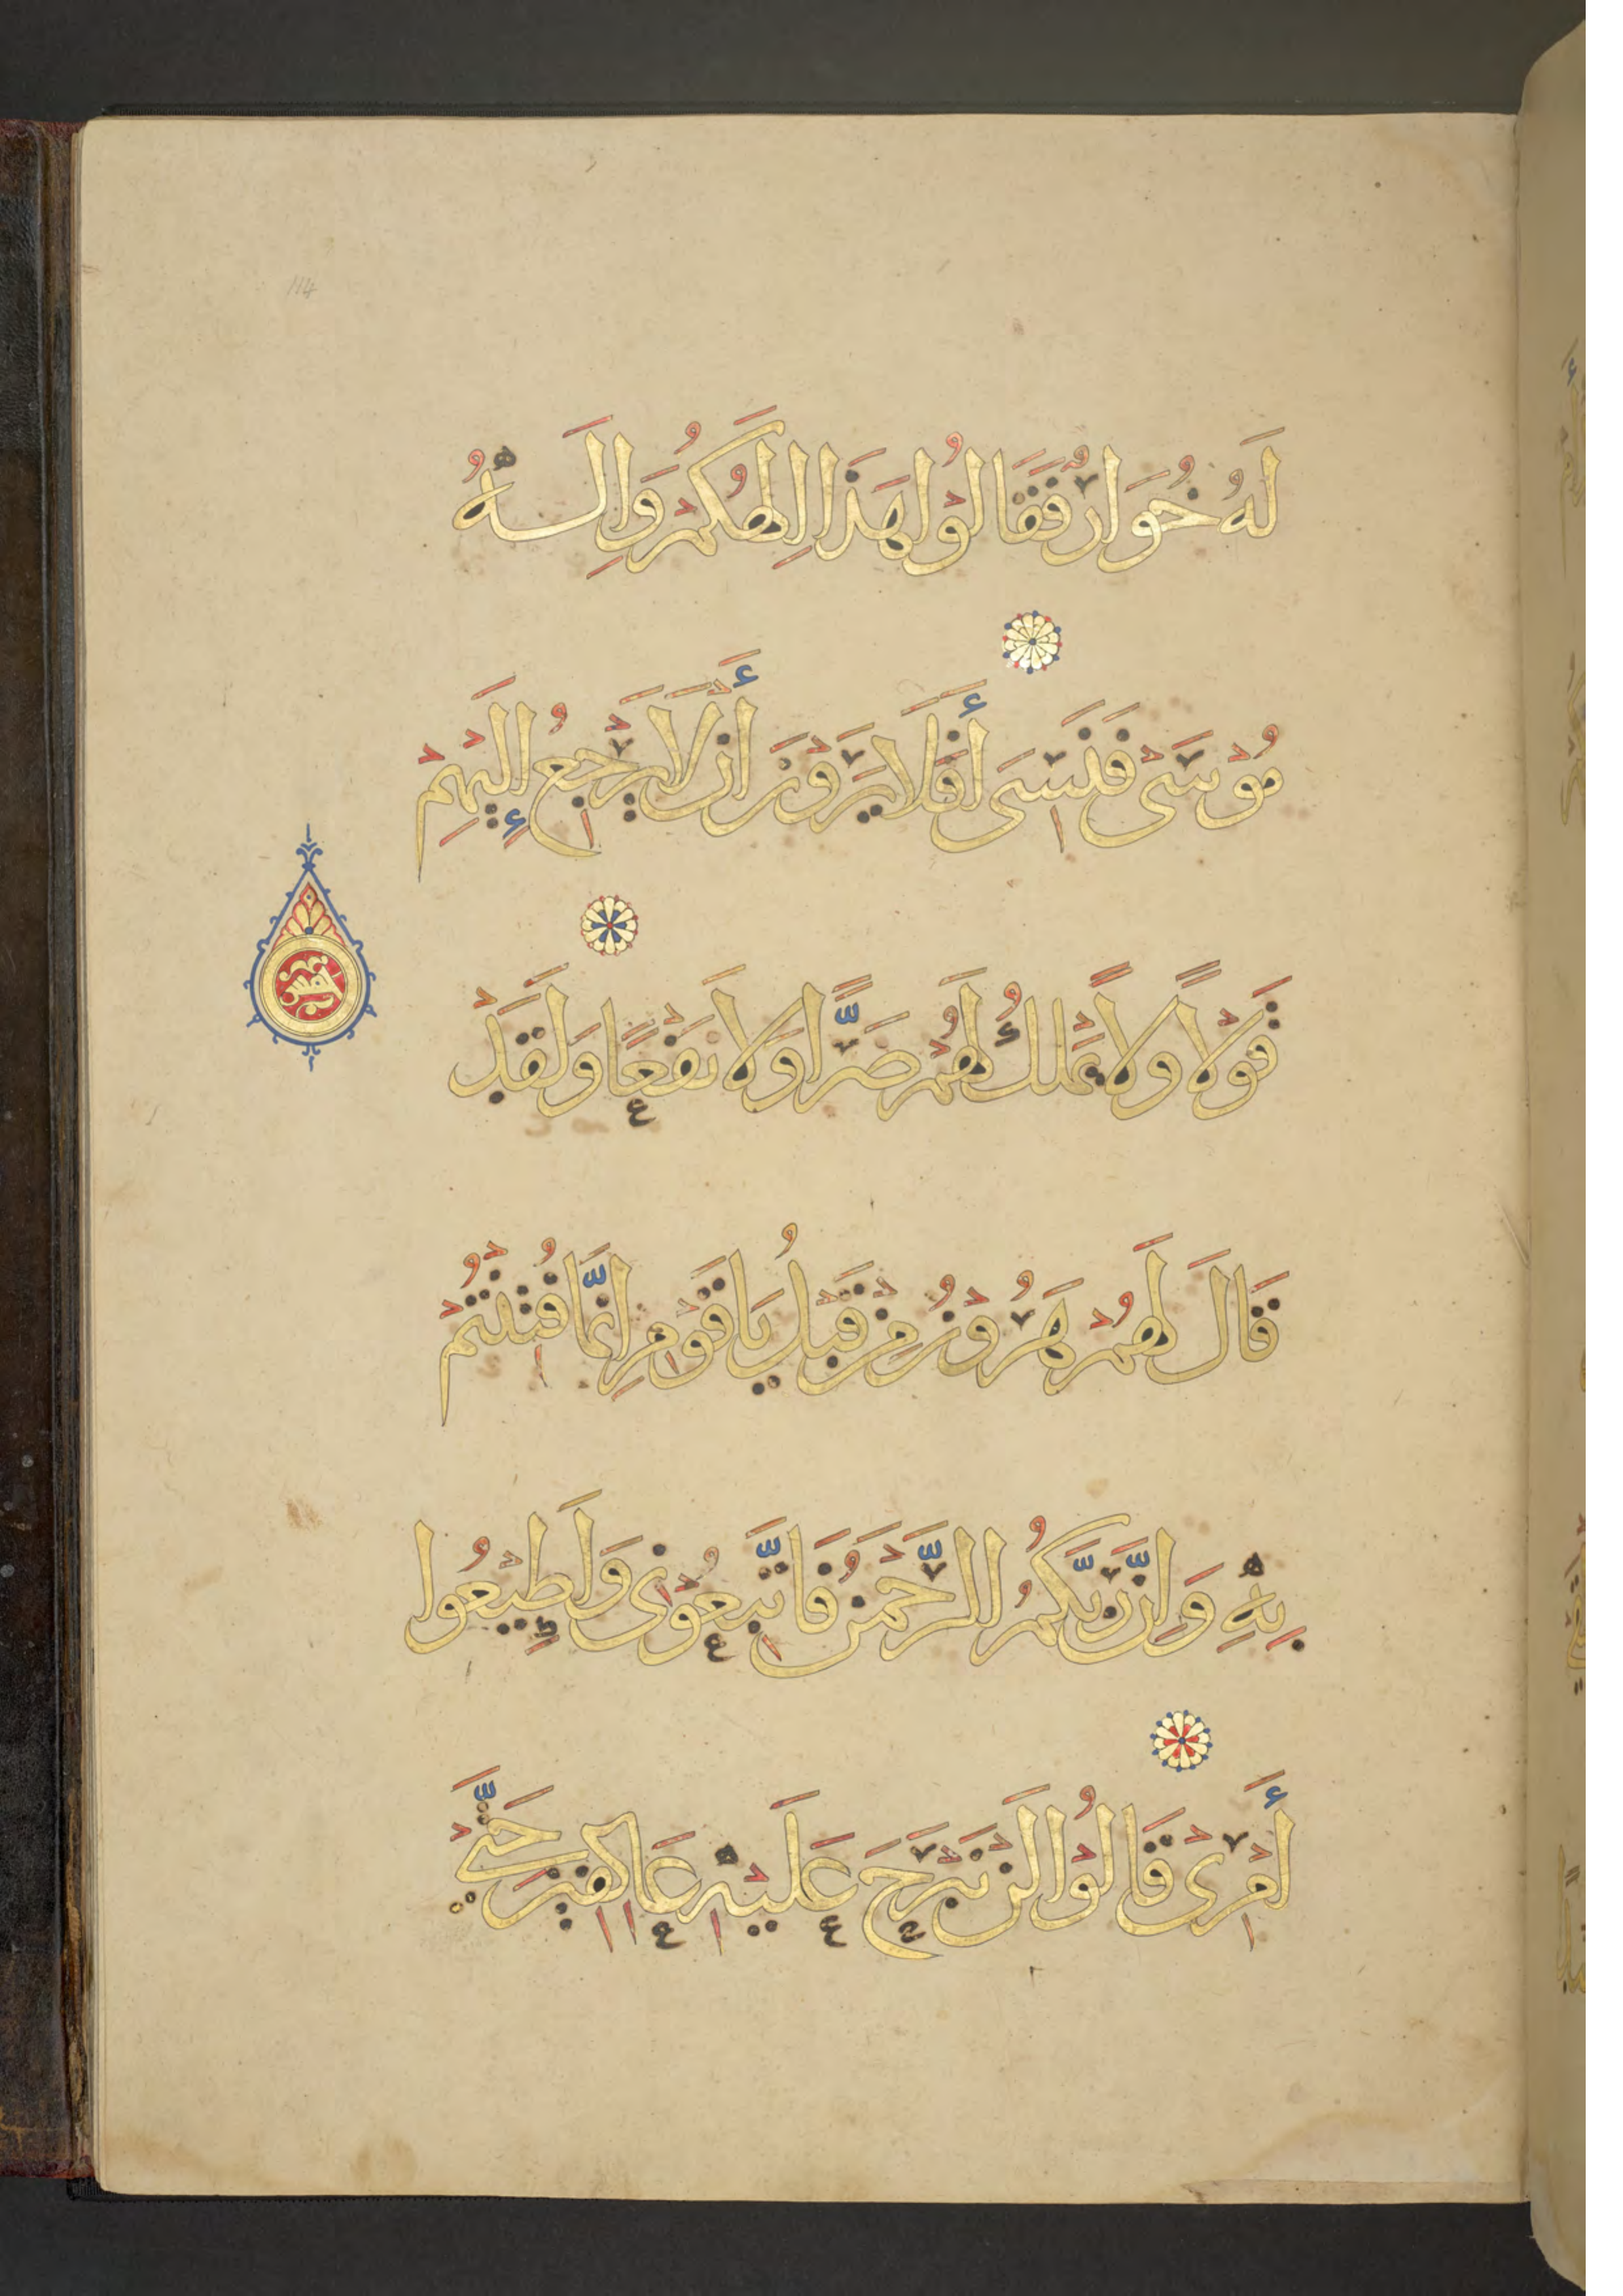 114
لَهُ خُوَارٌ فَقَالُوْا هَذَا اِلَهُكُمْ وَاِلَهُ
مُوْسَى فَنَسِىَ أَفَلَا يَرَوْنَ أَنْ لَّا يَرْجِعُ إِلَيْهِمْ
قَوْلًا وَلَا يَمْلِكُ لَهُمْ ضَرًّا وَلَا نَفْعًا وَلَقَدْ
قَالَ لَهُمْ هَرُوْنُ مِنْ قَبْلُ يَاقَوْمِ اِنَّمَا فُتِنْتُمْ
بِهِ وَاِنَّ رَبَّكُمُ الرَّحْمَنُ فَاتَّبِعُوْنِى وَاَطِيْعُوا
أَمْرِى قَالُوْا لَنْ نَبْرَحَ عَلَيْهِ عَاكِفِيْنَ حَتَّى